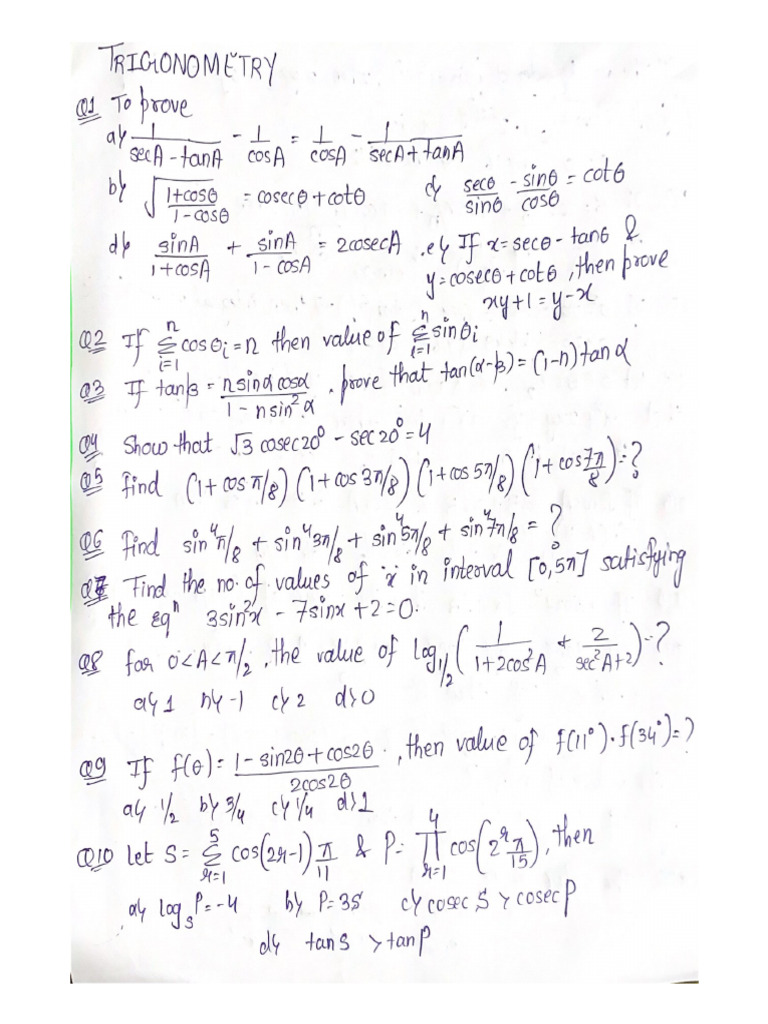 TRIGONOMETRY
Q1 To prove
a) 1/(secA - tanA) - 1/cosA = 1/cosA - 1/(secA + tanA)
b) √((1+cosθ)/(1-cosθ)) = cosecθ + cotθ c) secθ/sinθ - sinθ/cosθ = cotθ
d) sinA/(1+cosA) + sinA/(1-cosA) = 2cosecA .e) If x = secθ - tanθ &
y = cosecθ + cotθ, then prove
xy+1 = y-x
Q2 If Σ_{i=1}^{n} cosθi = n then value of Σ_{i=1}^{n} sinθi
Q3 If tanβ = (n sinα cosα)/(1 - n sin²α) . prove that tan(α-β) = (1-n)tanα
Q4 Show that √3 cosec20° - sec20° = 4
Q5 find (1+cos π/8)(1+cos 3π/8)(1+cos 5π/8)(1+cos 7π/8) = ?
Q6 find sin⁴π/8 + sin⁴3π/8 + sin⁴5π/8 + sin⁴7π/8 = ?
Q7 Find the no. of values of 'x' in interval [0,5π] satisfying
the eqⁿ 3sin²x - 7sinx + 2 = 0.
Q8 for 0<A<π/2, the value of log_{1/2}(1/(1+2cos²A) + 2/(sec²A+2)) = ?
a) 1 b) -1 c) 2 d) 0
Q9 If f(θ) = (1 - sin2θ + cos2θ)/(2cos2θ), then value of f(11°)·f(34°) = ?
a) 1/2 b) 3/4 c) 1/4 d) 1
Q10 let S = Σ_{r=1}^{5} cos(2r-1)π/11 & P = Π_{r=1}^{4} cos(2^r π/15), then
a) log_S P = -4 b) P = 3S c) cosec S > cosec P
d) tan S > tan P